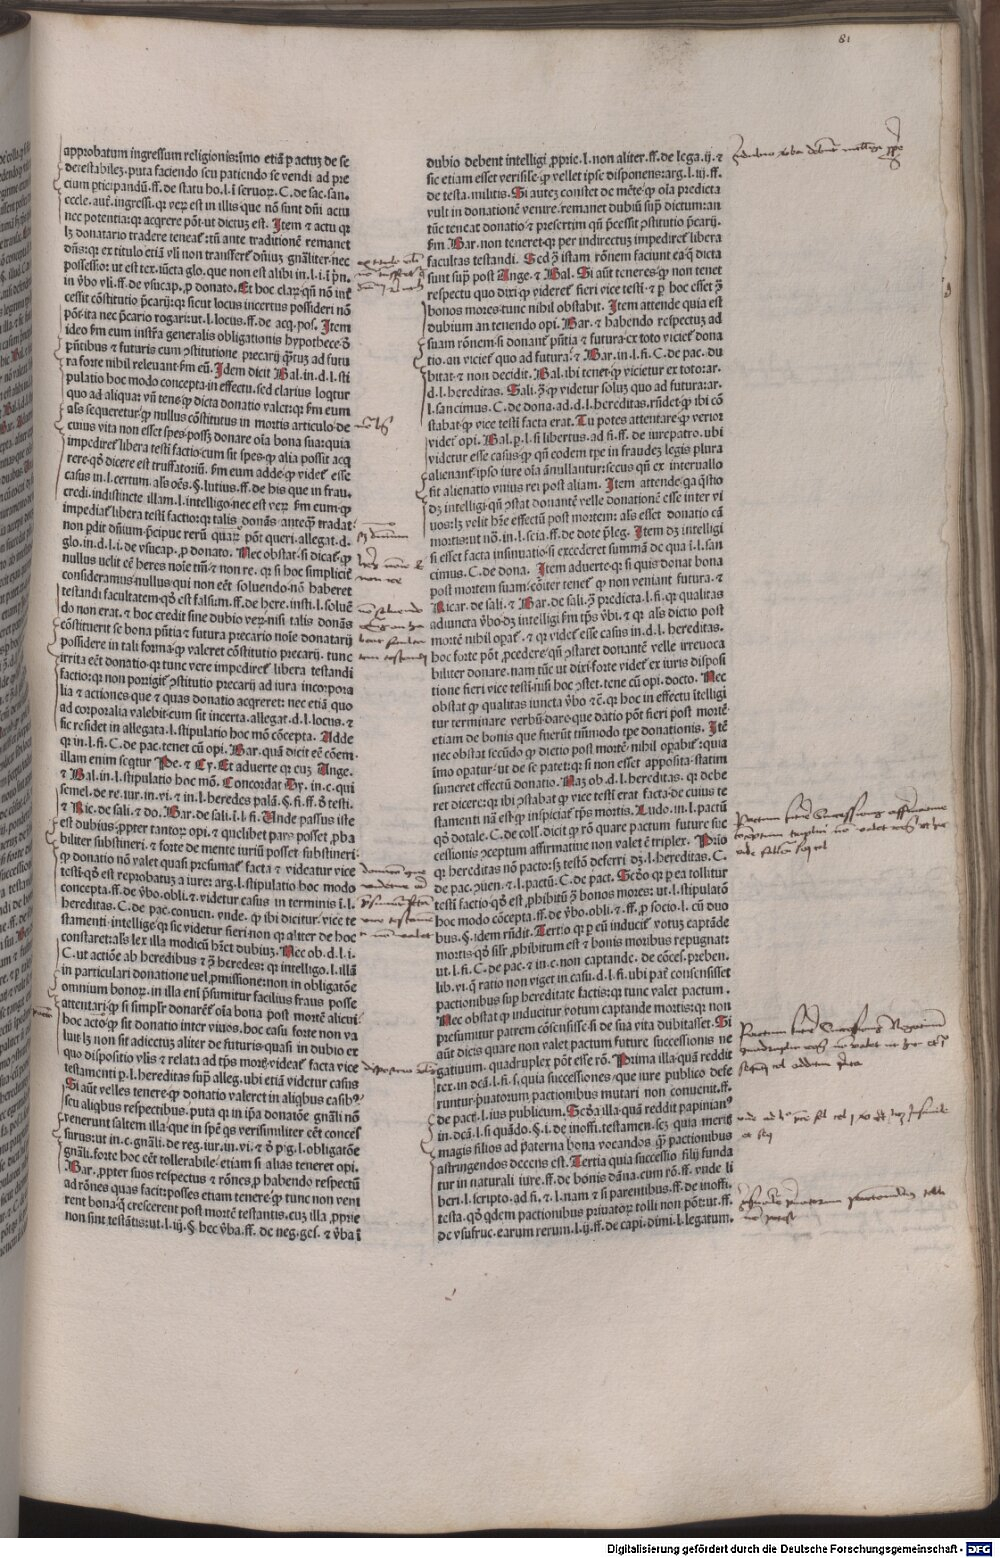 81
approbatum ingressum religionis: imo etiã p actuz de se
detestabilez. puta faciendo seu patiendo se vendi ad pre
cium ptici: pandũ. ff. de statu ho. l. i seruoꝝ. C. de sac. san.
eccle. aut̃. ingressi. ꝙ veꝝ est in illis que nõ sunt dñi actu
nec potentia: ꝙ acqrere põt ut dictuz est. Item ⁊ actu ꝙ
lꝫ donatario tradere teneat̃: tñ ante traditionẽ remanet
dñs: ꝙ ex titulo etiã vli non transfert̃ dñiuz gnãliter: nec
possessio: ut est tex. iũcta glo. que non est alibi in. l. i. i pn.
in ṽbo vli. ff. de vsucap. p donato. Et hoc claꝝ qñ nõ int̃
cessit cõstitutio p̃carij: ꝙ sicut locus incertus possideri nõ
põt: ita nec p̃cario rogari: ut. l. locus. ff. de acq. pos. Item
ideo fm eum instr̃a generalis obligationis hypothece
pñtibus ⁊ futuris cum ꝯstitutione precarij q̃tuz ad futu
ra forte nihil releuant fm eũ. Idem dicit Bal. in. d. l. sti
pulatio hoc modo concepta. in effectu. sed clarius loqtur
quo ad aliqua: vñ tene ꝙ dicta donatio valet: ꝙ fm eum
als sequeretur ꝙ nullus cõstitutus in mortis articulo de
cuius vita non esset spes possꝫ donare oĩa bona sua: quia
impediret̃ libera testi factio: cum sit spes ꝙ alia possit acq
rere: qđ dicere est truffatoriũ. fm eum adde ꝙ videt̃ esse
casus in. l. certum. als oẽs. §. lutius. ff. de his que in frau.
credi. indistincte illam. l. intelligo: nec est veꝝ fm eum ꝙ
impediat̃ libera testi factio: ꝙ talis donãs anteq̃ tradat
non pdit dñium p̃cipue rerũ quaꝝ põt queri. allegat. d.
glo. in. d. l. i. de vsucap. p donato. Nec obstat si dicat̃ ꝙ
nullus uelit eẽ heres noĩe tm̃ ⁊ non re. ꝙ si hoc simplicit̃
consideramus: nullus qui non eẽt soluendo: nõ haberet
testandi facultatem: qđ est falsum. ff. de here. insti. l. soluẽ
do non erat. ⁊ hoc credit sine dubio veꝝ: nisi talis donãs
cõstituerit se bona pñtia ⁊ futura precario noĩe donatarij
possidere in tali forma ꝙ valeret cõstitutio precarij. tunc
irrita eẽt donatio: ꝙ tunc vere impediret̃ libera testandi
factio: ꝙ non porrigit̃ ꝯstitutio precarij ad iura incorpora
lia ⁊ actiones que ⁊ quas donatio acqreret: nec etiã quo
ad corporalia valebit: cum sit incerta. allegat. d. l. locus. ⁊
sic residet in allegata. l. stipulatio hoc mõ cõcepta. Adde
ꝙ in. l. fi. C. de pac. tenet cũ opi. Bar. quã dicit eẽ cõem
illam enim seqtur Pe. ⁊ Cy. Et aduerte ꝙ cuz Ange.
⁊ Bal. in. l. stipulatio hoc mõ. Concordat Dy. in. c. qui
semel. de re. iur. in. vi. ⁊ in. l. heredes palã. §. fi. ff. đ testi.
⁊ Ric. de sali. ⁊ do. Bar. de sali. i. l. fi. Unde passus iste
est dubius ꝓpter tantoꝝ opi. ⁊ quelibet pars posset ꝓba
biliter substineri. ⁊ forte de mente iuriũ posset substineri
ꝙ donatio nõ valet quasi presumat̃ facta ⁊ videatur vice
testi: qđ est reprobatuz a iure: arg. l. stipulatio hoc modo
concepta. ff. de ṽbo. obli. ⁊ videtur casus in terminis i. l.
hereditas. C. de pac. conuen. vnde. ꝙ ibi dicitur. vice te
stamenti: intellige: ꝙ sic videtur fieri non ꝙ aliter de hoc
constaret: als lex illa modicũ hr̃et dubiuz. Nec ob. d. l. i.
C. ut actiõe ab heredibus ⁊ ꝯ̃ heredes: ꝙ intelligo. l. illã
in particulari donatione uel ꝓmissione: non in obligatõe
omnium bonoꝝ. in illa eni p̃sumitur facilius fraus posse
attentari: ꝙ si simplr donaret̃ oĩa bona post mortẽ alicui
hoc acto ꝙ sit donatio inter viuos. hoc casu forte non va
luit lꝫ non sit adiectuz aliter de futuris: quasi in dubio ex
quo dispositio vlis ⁊ relata ad tp̃s mort̃. videat̃ facta vice
testamenti p. l. hereditas sup̃ alleg. ubi etiã videtur casus
Si aũt velles tenere ꝙ donatio valeret in aliqbus casibꝰ
seu aliqbus respectibus. puta ꝙ in ip̃a donatõe gñali nõ
venerunt saltem illa que in spẽ qs verisimiliter cẽt conces
surus: ut in. c. gñali. de reg. iur. in. vi. ⁊ đ pig. l. obligatõe
gñali. forte hoc cẽt tollerabile: etiam si alias teneret opi.
Bar. ꝓpter suos respectus ⁊ rõnes. p habendo respectũ
ad rões quas facit: posses etiam tenere ꝙ tunc non veni
rent bona ꝗ crescerent post mortẽ testantis. cuz illa ꝓprie
non sint testãtis: ut. l. iij. §. hec ṽba. ff. de neg. gest. ⁊ ṽba i
dubio debent intelligi ꝓprie. l. non aliter. ff. de lega. ij. ⁊
sic etiam esset verisile ꝙ vellet ipse disponens: arg. l. ij. ff.
de testa. militis. Si autez constet de mẽte ꝙ oĩa predicta
vult in donationẽ venire. remanet dubiũ sup̃ dictum: an
tũc teneat donatio ⁊ presertim qñ p̃cessit ꝯstitutio p̃carij.
fm Bar. non teneret: ꝙ per indirectuz impediret̃ libera
facultas testandi. Sed ꝯ̃ istam rõnem faciunt ea ꝗ dicta
sunt sup̃ post Ange. ⁊ Bal. Si aũt teneres ꝙ non tenet
respectu quo dixi ꝙ videret̃ fieri vice testi. ⁊ p hoc esset ꝯ̃
bonos mores: tunc nihil obstabit. Item attende quia est
dubium an tenendo opi. Bar. ⁊ habendo respectuz ad
suam rõnem: si donant̃ pñtia ⁊ futura: ex toto viciet̃ dona
tio. an viciet̃ quo ad futura. ⁊ Bar. in. l. fi. C. de pac. du
bitat ⁊ non decidit. Bal. ibi tenet ꝙ vicietur ex toto: ar.
d. l. hereditas. Sali. ꝯ̃ ꝙ videtur soluz quo ad futura: ar.
l. sancimus. C. de dona. ad. d. l. hereditas. rñdet ꝙ ibi cõ
stabat ꝙ vice testi facta erat. Tu potes attentare ꝙ verior
videt̃ opi. Bal. p. l. si libertus. ad fi. ff. de iurepatro. ubi
videtur esse casus ꝙ qñ eodem tpe in fraudez legis plura
alienant̃: ipso iure oĩa ãnullantur: secus qñ ex interuallo
fit alienatio vnius rei post aliam. Item attende ꝗ qstio
dꝫ intelligi qñ ꝯstat donantẽ velle donationẽ esse inter vi
uos: lꝫ velit hr̃e effectũ post mortem: als esset donatio cã
mortis: ut nõ. in. l. seia. ff. de dote p̃leg. Item dꝫ intelligi
si esset facta insinuatio: si excederet summã de qua i. l. san
cimus. C. de dona. Item aduerte ꝙ si quis donat bona
post mortem suam: cõiter tenet̃ ꝙ non veniant futura. ⁊
Ricar. de sali. ⁊ Bar. de sali. ꝯ̃ predicta. l. fi. ꝙ qualitas
adiuncta ṽbo dꝫ intelligi fm tp̃s ṽbi. ⁊ ꝙ als dictio post
mortẽ nihil opat̃. ⁊ ꝙ videt̃ esse casus in. d. l. hereditas.
hoc forte põt ꝓcedere qñ ꝯstaret donantẽ velle irreuoca
biliter donare. nam tũc ut dixi forte videt̃ ex iuris disposi
tione fieri vice testi: nisi hoc ꝯstet. tene cũ opi. docto. Nec
obstat ꝙ qualitas iuncta ṽbo ⁊ c̃. ꝙ hoc in effectu ĩtelligi
tur terminare verbũ dare: que datio põt fieri post mortẽ
etiam de bonis que fuerũt tm̃modo tpe donationis. Itẽ
nec obstat secũdo ꝙ dictio post mortẽ. nihil opabit̃: quia
imo opatur: ut de se patet: ꝙ si non esset apposita: statim
sumeret effectũ donatio. Naꝫ ob. d. l. hereditas. ꝙ debe
ret dicere: ꝙ ibi ꝯstabat ꝙ vice testi erat facta: de cuius te
stamenti nã est ꝙ inspiciat̃ tp̃s mortis. Ludo. in. l. pactũ
qđ dotale. C. de coll. dicit ꝙ rõ quare pactum future suc
cessionis ꝯceptum affirmatiue non valet ẽ triplex. Prio
ꝙ hereditas nõ pacto: sꝫ testõ deferri dꝫ. l. hereditas. C.
de pac. ꝯuen. ⁊. l. pactũ. C. de pact. Scđo ꝙ p ea tollitur
testi factio qđ est ꝓhibitũ ꝯ̃ bonos mores: ut. l. stipulatõ
hoc modo cõcepta. ff. de ṽbo. obli. ⁊. ff. p socio. l. cũ duo
bus. §. idem rñdit. Tertio ꝙ p eũ inducit̃ votuz captãde
mortis: qđ silr̃ ꝓhibitum est ⁊ bonis moribus repugnat:
ut. l. fi. C. de pac. ⁊ in. c. non captande. de cõces. preben.
lib. vi. ꝗ ratio non viget in casu. d. l. fi. ubi pat̃ consensisset
pactionibus sup̃ hereditate factis: ꝙ tunc valet pactum.
Nec obstat ꝙ inducitur votum captande mortis: ꝙ non
presumitur patrem cõsensisse: si de sua vita dubitasset. Si
aũt dicis quare non valet pactum future successionis ne
gatiuum. quadruplex põt esse rõ. Prima illa quã reddit
tex. in. dcã. l. fi. s. quia successiones que iure publico defe
runtur: priuatorum pactionibus mutari non conuenit. ff.
de pact. l. ius publicum. Scđa illa quã reddit papinianꝰ
in. dcã. l. si quãdo. §. i. de inoffi. testamen. sczꝫ quia meritis
magis filios ad paterna bona vocandos. q̃ pactionibus
astringendos decens est. Tertia quia successio filij funda
tur in naturali iure. ff. de bonis dãna. cum rõ. ff. vnde li
beri. l. scripto. ad fi. ⁊. l. nam ⁊ si parentibus. ff. de inoffi.
testa. qđ qdem pactionibus priuatoꝝ tolli non põt: ut. ff.
de vsufruc. earum rerum. l. ij. ff. de capi. dimi. l. legatum.
Digitalisierung gefördert durch die Deutsche Forschungsgemeinschaft - DFG